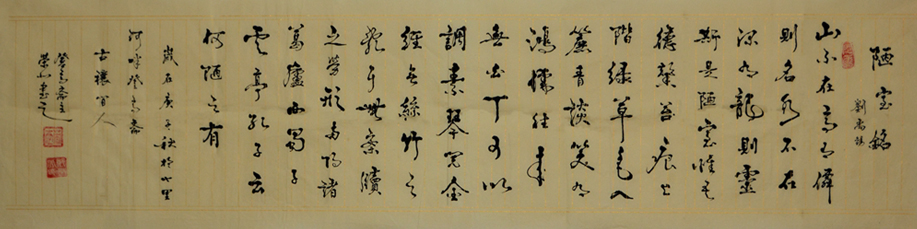 陋室銘
劉禹錫
山不在高有僊
則名水不在
深有龍則靈
斯是陋室惟吾
德馨苔痕上
階綠草色入
簾青談笑有
鴻儒往來
無白丁可以
調素琴閱金
經無絲竹之
亂耳無案牘
之勞形南陽諸
葛廬西蜀子
雲亭孔子云
何陋之有
歲在庚子秋於七里
河畔
古襄
書之